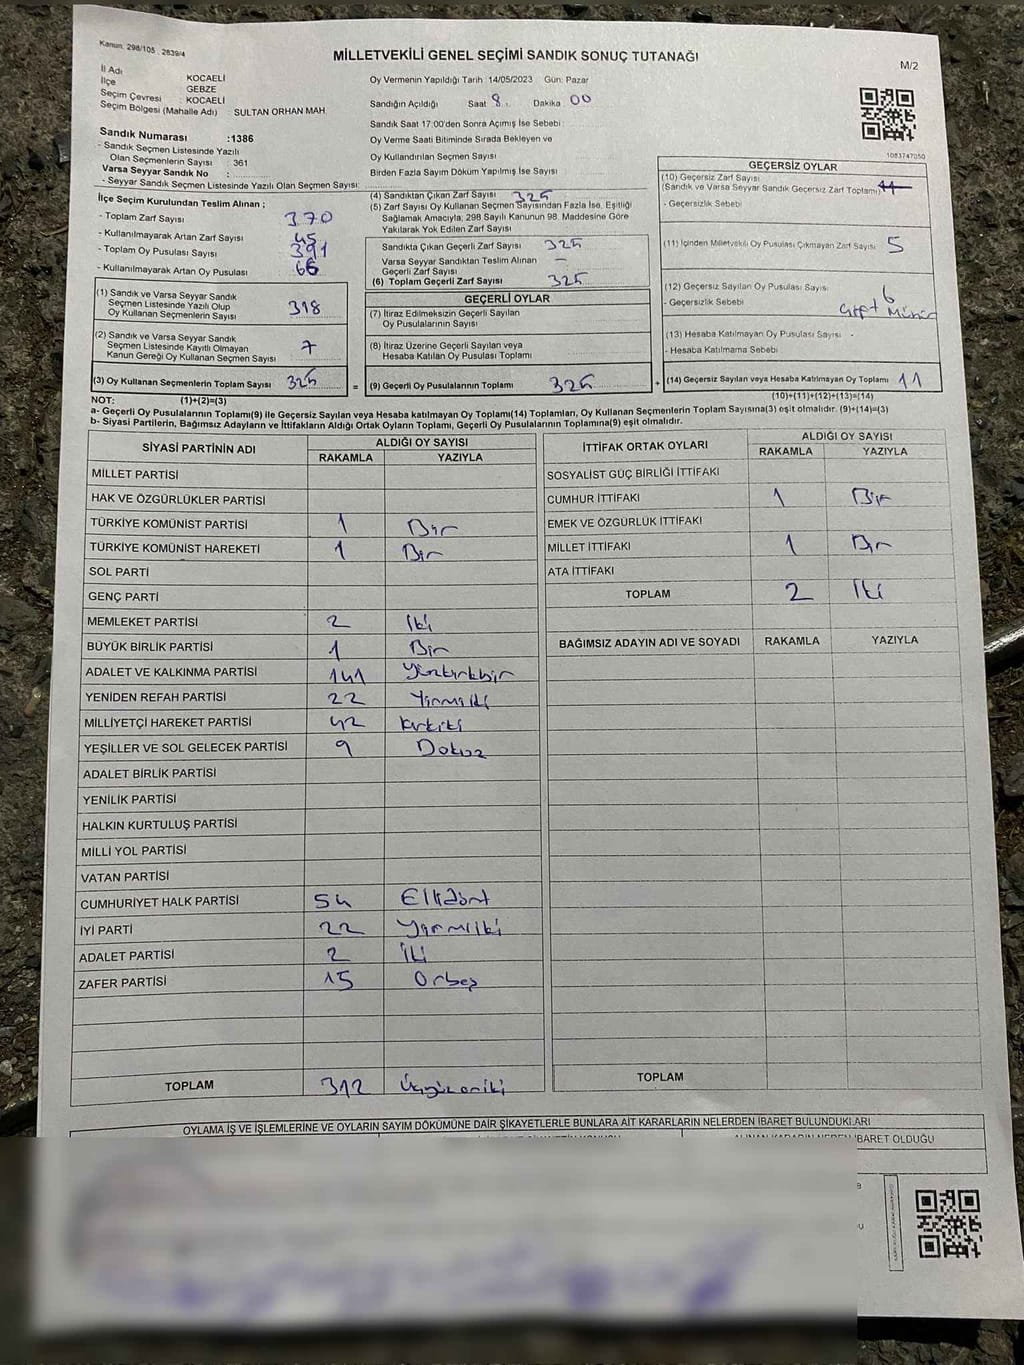 Kanun: 298/105 , 2839/4
MİLLETVEKİLİ GENEL SEÇİMİ SANDIK SONUÇ TUTANAĞI
M/2
İl Adı KOCAELİ
İlçe GEBZE
Seçim Çevresi : KOCAELİ
Seçim Bölgesi (Mahalle Adı) SULTAN ORHAN MAH.
Sandık Numarası :1386
- Sandık Seçmen Listesinde Yazılı
Olan Seçmenlerin Sayısı : 361
Varsa Seyyar Sandık No :
- Seyyar Sandık Seçmen Listesinde Yazılı Olan Seçmen Sayısı:
Oy Vermenin Yapıldığı Tarih :14/05/2023 Gün: Pazar
Sandığın Açıldığı Saat 8 : Dakika 00
Sandık Saat 17:00'den Sonra Açımış İse Sebebi :
Oy Verme Saati Bitiminde Sırada Bekleyen ve
Oy Kullandırılan Seçmen Sayısı
Birden Fazla Sayım Döküm Yapılmış İse Sayısı
1083747050
İlçe Seçim Kurulundan Teslim Alınan ;
- Toplam Zarf Sayısı 370
- Kullanılmayarak Artan Zarf Sayısı 45
- Toplam Oy Pusulası Sayısı 391
- Kullanılmayarak Artan Oy Pusulası 66
(1) Sandık ve Varsa Seyyar Sandık
Seçmen Listesinde Yazılı Olup
Oy Kullanan Seçmenlerin Sayısı 318
(2) Sandık ve Varsa Seyyar Sandık
Seçmen Listesinde Kayıtlı Olmayan
Kanun Gereği Oy Kullanan Seçmen Sayısı 7
(3) Oy Kullanan Seçmenlerin Toplam Sayısı 325 =
(4) Sandıktan Çıkan Zarf Sayısı 325
(5) Zarf Sayısı Oy Kullanan Seçmen Sayısından Fazla İse, Eşitliği
Sağlamak Amacıyla, 298 Sayılı Kanunun 98. Maddesine Göre
Yakılarak Yok Edilen Zarf Sayısı
Sandıkta Çıkan Geçerli Zarf Sayısı 325
Varsa Seyyar Sandıktan Teslim Alınan
Geçerli Zarf Sayısı –
(6) Toplam Geçerli Zarf Sayısı 325
GEÇERLİ OYLAR
(7) İtiraz Edilmeksizin Geçerli Sayılan
Oy Pusulalarının Sayısı
(8) İtiraz Üzerine Geçerli Sayılan veya
Hesaba Katılan Oy Pusulası Toplamı
(9) Geçerli Oy Pusulalarının Toplamı 325 +
GEÇERSİZ OYLAR
(10) Geçersiz Zarf Sayısı
(Sandık ve Varsa Seyyar Sandık Geçersiz Zarf Toplamı) 11
- Geçersizlik Sebebi
(11) İçinden Milletvekili Oy Pusulası Çıkmayan Zarf Sayısı 5
(12) Geçersiz Sayılan Oy Pusulası Sayısı 6
- Geçersizlik Sebebi
(13) Hesaba Katılmayan Oy Pusulası Sayısı -
- Hesaba Katılmama Sebebi
(14) Geçersiz Sayılan veya Hesaba Katılmayan Oy Toplamı 11
NOT: (1)+(2)=(3)
(10)+(11)+(12)+(13)=(14)
a- Geçerli Oy Pusulalarının Toplamı(9) ile Geçersiz Sayılan veya Hesaba katılmayan Oy Toplamı(14) Toplamları, Oy Kullanan Seçmenlerin Toplam Sayısına(3) eşit olmalıdır. (9)+(14)=(3)
b- Siyasi Partilerin, Bağımsız Adayların ve İttifakların Aldığı Ortak Oyların Toplamı, Geçerli Oy Pusulalarının Toplamına(9) eşit olmalıdır.
SİYASİ PARTİNİN ADI ALDIĞI OY SAYISI
RAKAMLA YAZIYLA
MİLLET PARTİSİ
HAK VE ÖZGÜRLÜKLER PARTİSİ
TÜRKİYE KOMÜNİST PARTİSİ 1 Bir
TÜRKİYE KOMÜNİST HAREKETİ 1 Bir
SOL PARTİ
GENÇ PARTİ
MEMLEKET PARTİSİ 2 İki
BÜYÜK BİRLİK PARTİSİ 1 Bir
ADALET VE KALKINMA PARTİSİ 141 Yüzkırkbir
YENİDEN REFAH PARTİSİ 22 Yirmiiki
MİLLİYETÇİ HAREKET PARTİSİ 42 Kırkiki
YEŞİLLER VE SOL GELECEK PARTİSİ 9 Dokuz
ADALET BİRLİK PARTİSİ
YENİLİK PARTİSİ
HALKIN KURTULUŞ PARTİSİ
MİLLİ YOL PARTİSİ
VATAN PARTİSİ
CUMHURİYET HALK PARTİSİ 54 Ellidört
İYİ PARTİ 22 Yirmiiki
ADALET PARTİSİ 2 İki
ZAFER PARTİSİ 15 Onbeş
TOPLAM 312 Üçyüzoniki
İTTİFAK ORTAK OYLARI ALDIĞI OY SAYISI
RAKAMLA YAZIYLA
SOSYALİST GÜÇ BİRLİĞİ İTTİFAKI
CUMHUR İTTİFAKI 1 Bir
EMEK VE ÖZGÜRLÜK İTTİFAKI
MİLLET İTTİFAKI 1 Bir
ATA İTTİFAKI
TOPLAM 2 İki
BAĞIMSIZ ADAYIN ADI VE SOYADI RAKAMLA YAZIYLA
TOPLAM
OYLAMA İŞ VE İŞLEMLERİNE VE OYLARIN SAYIM DÖKÜMÜNE DAİR ŞİKAYETLERLE BUNLARA AİT KARARLARIN NELERDEN İBARET BULUNDUKLARI
ALINAN KARARIN NEDEN İBARET OLDUĞU